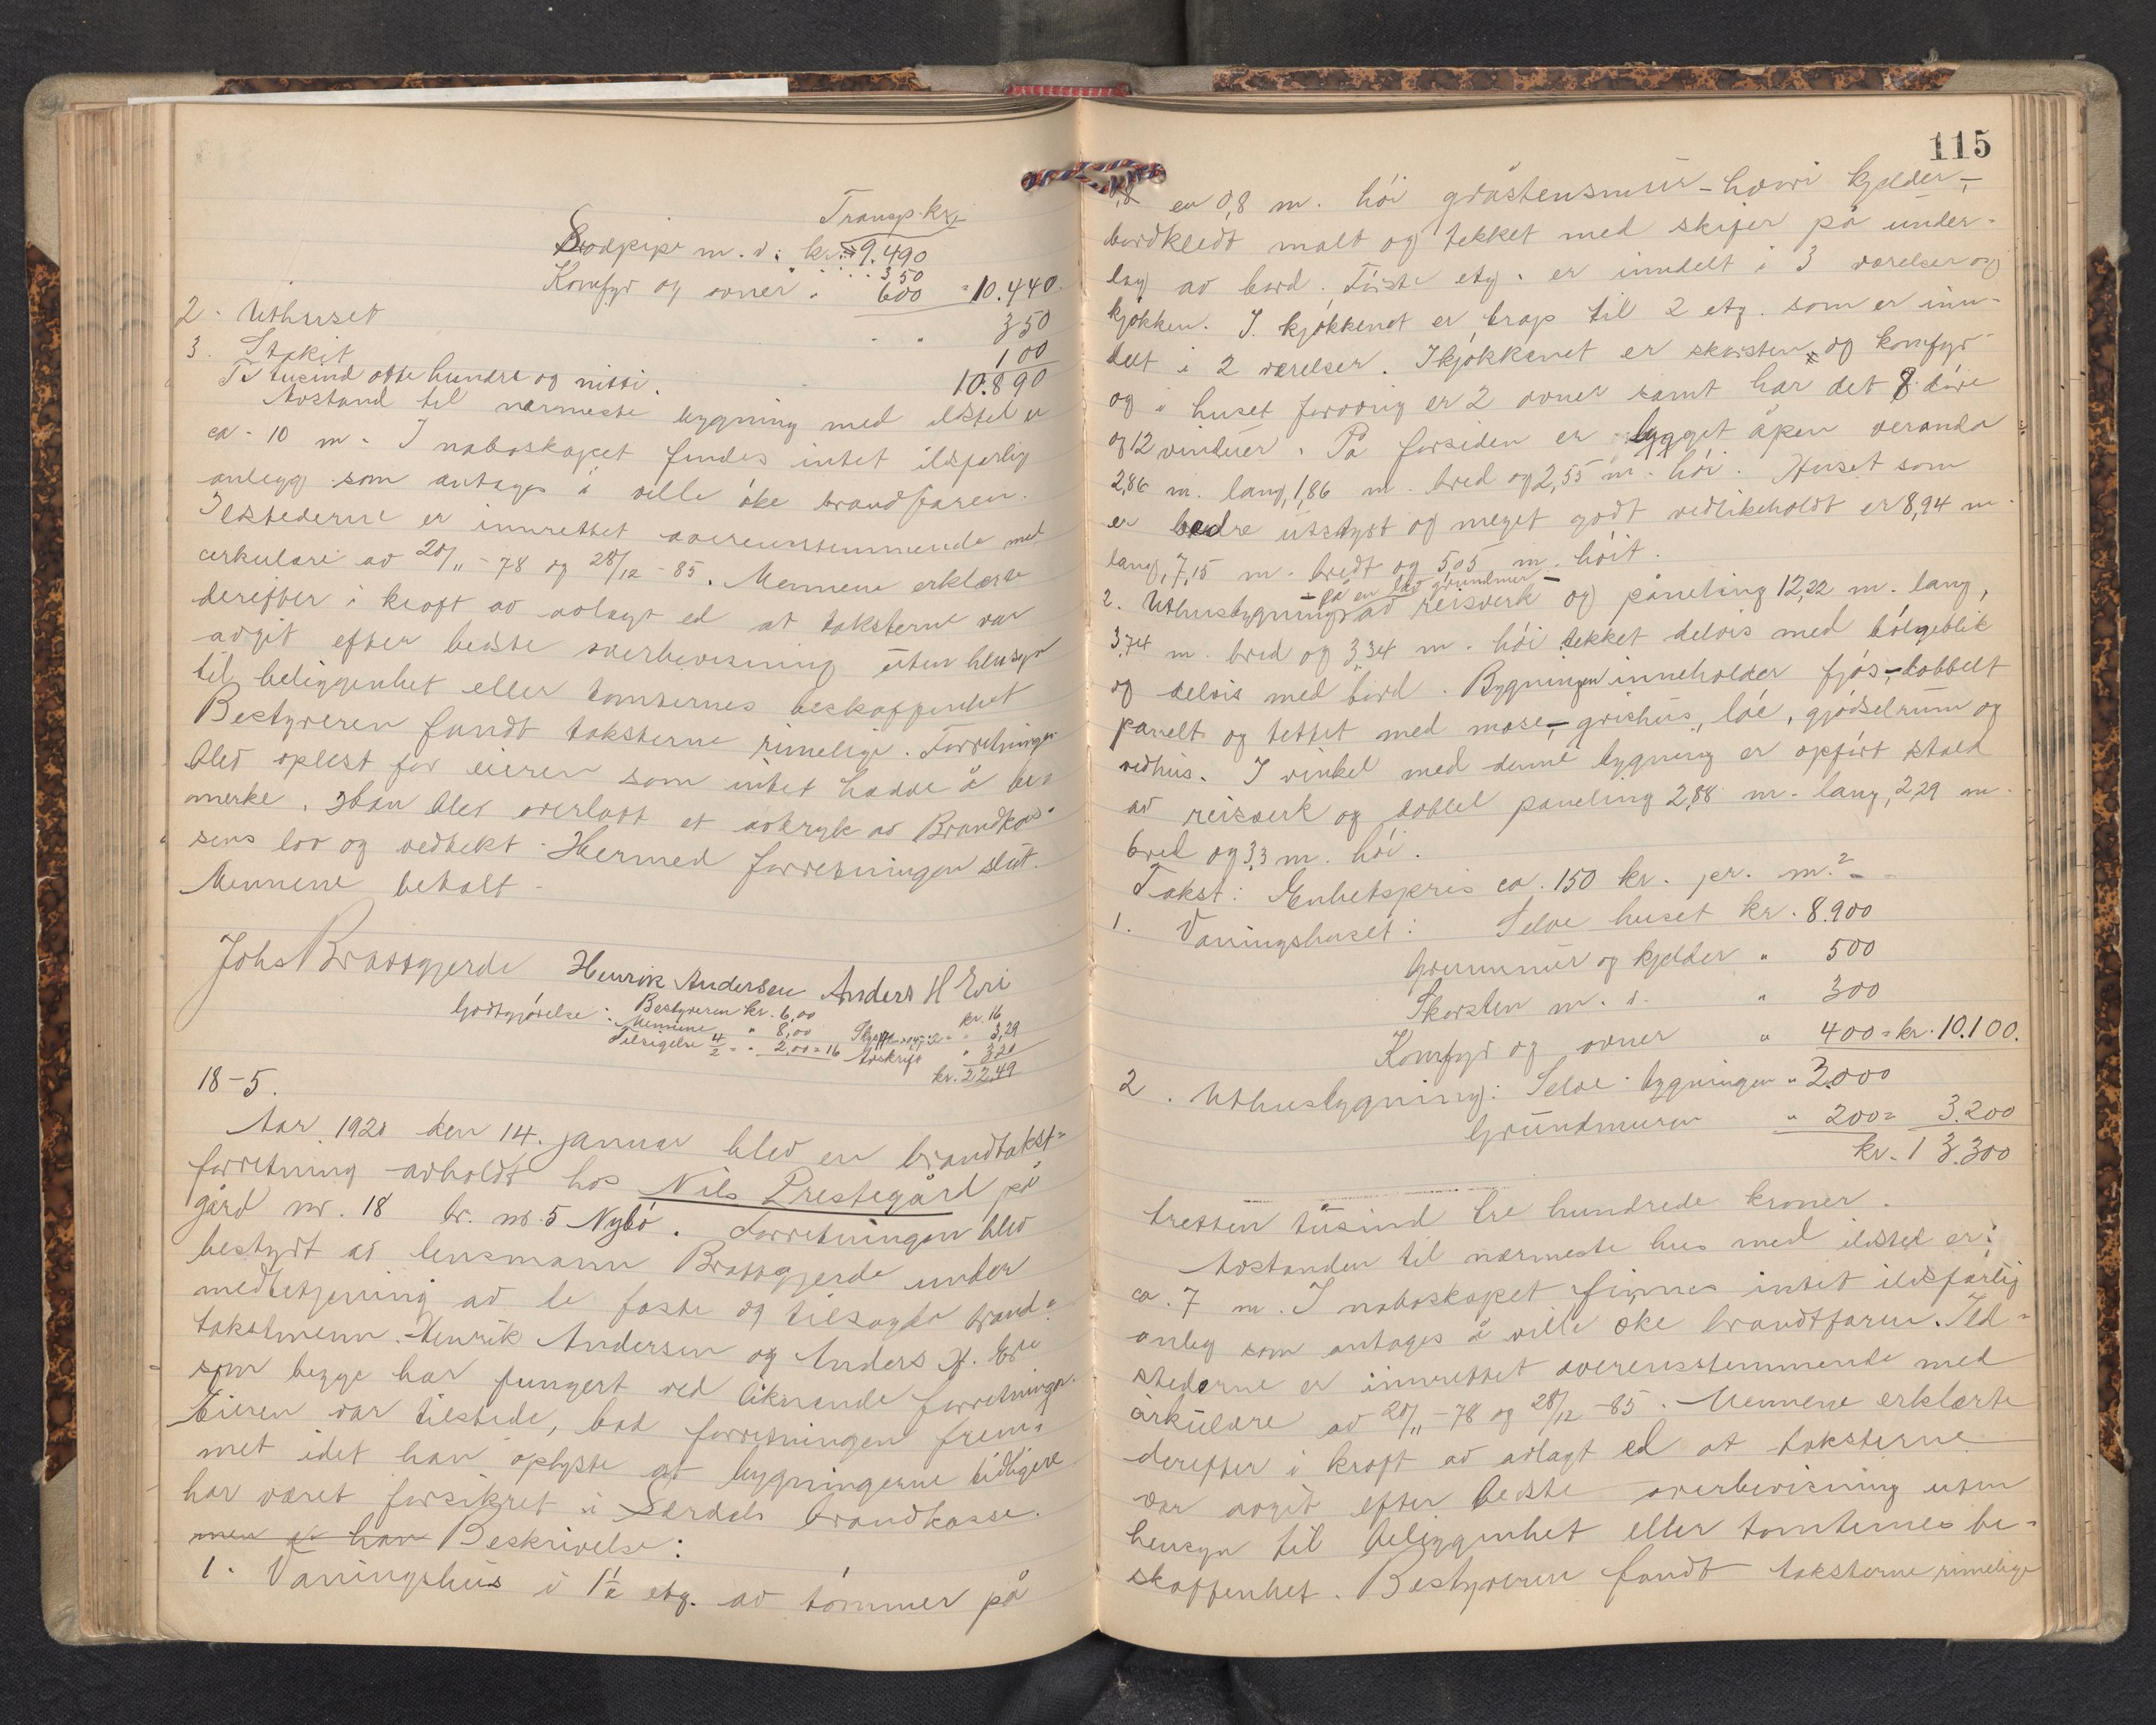 Transp. kr.
Stodpipe m. v. kr. 9.490
350
Komfyr og ovner " 600 = 10.440.
2. Uthuset 350
3. Stakit 100
Ti tusind otte hundre og nitti. 10.890
Avstand til nærmeste bygning med ilsted er
ca. 10 m. I naboskapet findes intet ildsfarlig
anlegg som antages å ville øke brandfaren.
Ilstederne er innrettet overensstemmende med
cirkulære av 20/11 - 78 og 28/12 - 85. Mennene erklærte
derefter i kraft av avlagt ed at taksterne var
avgit efter bedste overbevisning uten hensyn
til beliggenhet eller tomternes beskaffenhet
Bestyreren fandt taksterne rimelige. Forretningen
blev oplest for eieren som intet hadde å be-
merke. Han blev overlatt et avtryk av Brandkas-
sens lov og vedtekt. Hermed forretningen slut.
Mennene betalt -
Johs Brattgjerde Henrik Andersen Anders H Eri
Godtgjørelse: Bestyreren kr. 6,00 kr. 16
Mennene " 8,00 " 3,29
Tilsigelse 4/2 " 2,00 = 16 Avskrift " 320
kr. 22,49
18-5.
Aar 1920 den 14. januar blev en brandtakst-
forretning avholdt hos Nils Prestegård på
gård nr. 18 br. nr. 5 Nybö. Forretningen blev
bestyrt av lensmann Brattgjerde under
medbetjening av de faste og tilsagte brand-
takstmenn Henrik Andersen og Anders H. Eri
som begge har fungert ved liknende forretninger.
Eieren var tilstede, bad forretningen frem-
met idet han oplyste at bygningerne tidligere
har været forsikret i Lærdals brandkasse.
men Beskrivelse:
1. Våningshus i 1½ etg. av tømmer på
115
0,8 en 0,8 m. høi gråstensmur - hvori kjelder -,
bordkledt malt og tekket med skifer på under-
lag av bord. Første etg. er inndelt i 3 værelser og
kjøkken. I kjøkkenet er trap til 2 etg. som er inn-
delt i 2 værelser. I kjøkkenet er skorsten og komfyr
og i huset forøvrig er 2 ovner samt har det 8 döre
og 12 vinduer. På forsiden er bygget åpen veranda
2,86 m. lang, 1,86 m. bred og 2,55 m. høi. Huset som
er bedre utstyrt og meget godt vedlikeholdt er 8,94 m.
lang, 7,15 m. bredt og 5,05 m. höit.
- på en lav grunnmur -
2. Uthusbygning av reisverk og paneling 12,22 m. lang,
3,74 m. bred og 3,34 m. høi tekket delvis med bølgeblik
og delvis med bord. Bygningen inneholder fjøs, - dobbelt
panelt og tettet med mose, - grishus, löe, gjødselrum og
vedhus. I vinkel med denne bygning er opført stald
av reisverk og dobbel paneling 2,88 m. lang, 2,29 m.
bred og 3,3 m. høi.
Takst: Enhetspris ca. 150 kr. pr. m.² -
1. Våningshuset: Selve huset kr. 8.900
Grunnmur og kjelder " 500
Skorsten m. v. " 300
Komfyr og ovner " 400 = kr. 10.100.
2. Uthusbygning: Selve bygningen " 3.000
Grundmuren " 200 = 3.200
kr. 13.300
tretten tusind tre hundrede kroner.
Avstanden til nærmeste hus med ildsted er
ca. 7 m. I naboskapet finnes intet ildsfarlig
anleg som antages å ville øke brandtfaren. Ild-
stederne er innrettet overensstemmende med
cirkulære av 20/11 - 78 og 28/12 - 85. Mennene erklærte
derefter i kraft av avlagt ed at taksterne
var avgit efter bedste overbevisning uten
hensyn til beliggenhet eller tomternes be-
skaffenhet. Bestyreren fandt taksterne rimelige